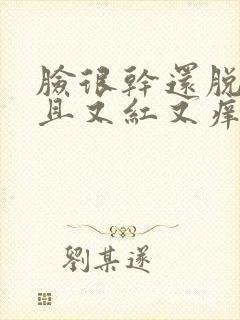 臉很幹還脫
且又紅又痒
劉某遂